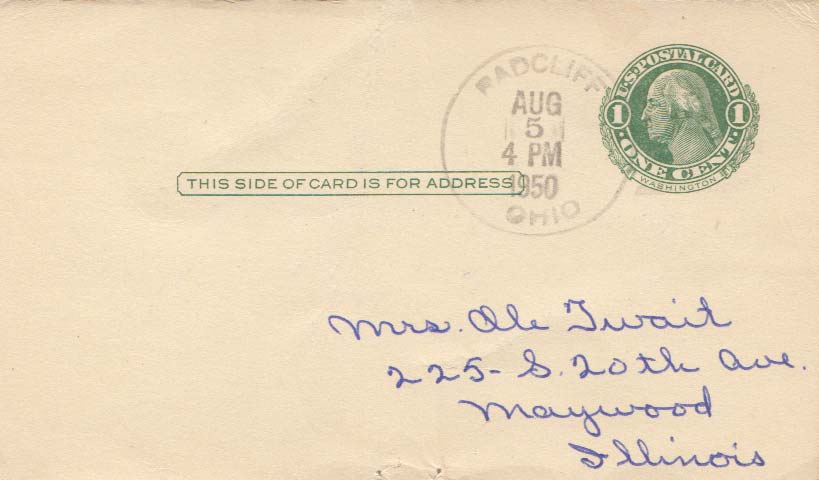 RADCLIFF
AUG
5
4 PM
1950
OHIO
U.S. POSTAL CARD
1 1
ONE CENT
WASHINGTON
THIS SIDE OF CARD IS FOR ADDRESS
Mrs. Ole Twait
225- S. 20th Ave.
Maywood
Illinois